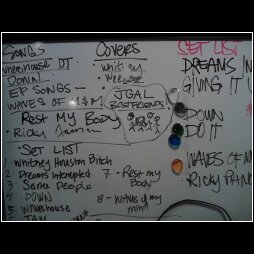 SONGS
Warehouse DJ
DOWN
EP SONGS
WAVES OF M$M
REST MY BODY
- RICKY
Covers
- White
- Weezer
JGAL
BESTFRIENDS
SET LIST
1. Whitney Houston Bitch
2 Dreams Interrupted
3. Some People
4 DOWN
5 WAREHOUSE
6 JAM
7 - Rest my
Body
8 - WAVES OF MY
MIND
SET LIST
DREAMS IN
GIVING IT U
DOWN
DO IT
WAVES OF M
RICKY FAN